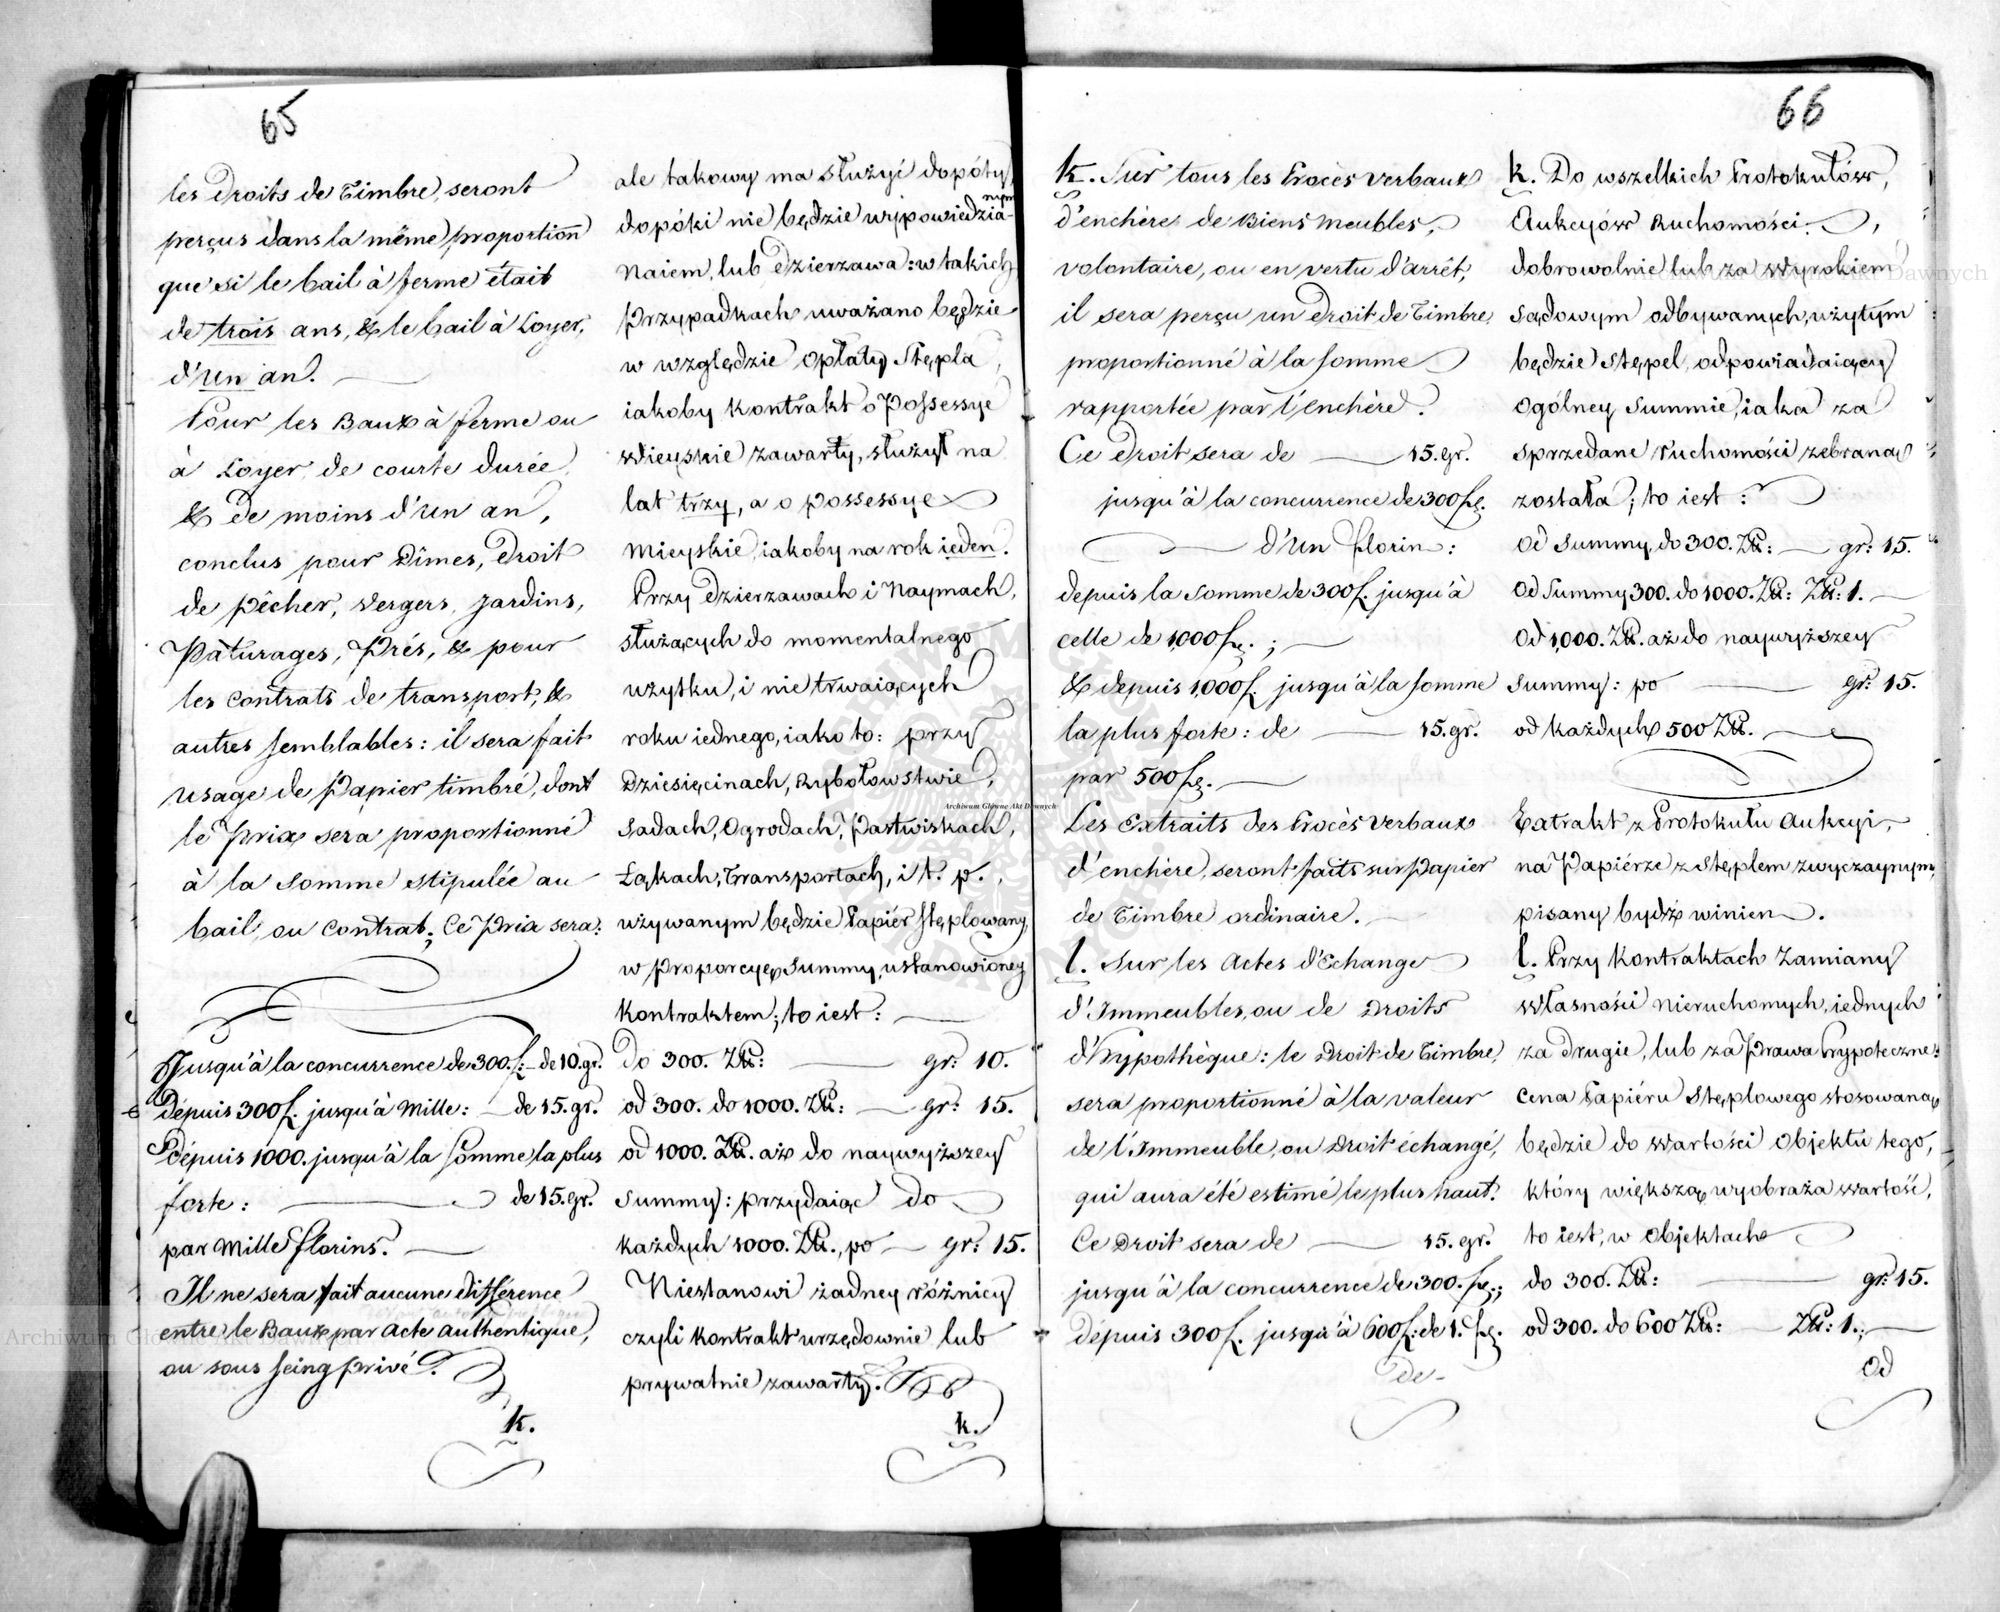 65
les Droits de Timbre, seront
perçus dans la même proportion
que si le bail à ferme était
de trois ans, & le bail à Loyer,
d'un an.
Pour les Baux à ferme ou
à Loyer de courte durée,
& de moins d'un an,
conclus pour Dîmes, Droit
de Pêcher, Vergers, Jardins,
Pâturages, Prés, & pour
les Contrats de transport, &
autres semblables: il sera fait
usage de Papier timbré, dont
le Prix sera proportionné
à la Somme stipulée au
bail, ou Contrat; Ce Prix sera:
Jusqu'à la concurrence de 300.f:— de 10.gr.
Dépuis 300f. jusqu'à Mille: — de 15.gr.
Dépuis 1000. jusqu'à la Somme la plus
forte: — de 15.gr.
par Mille florins.
Il ne sera fait aucune différence
entre le Baux par Acte Authentique,
ou sous seing privé.
k.
ale takowy ma służyć dopóty,
dopóki nie będzie wypowiedzia-
nym
Naiem, lub Dzierzawa: w takich
Przypadkach uważano będzie
w względzie Opłaty Stępla,
iakoby Kontrakt o Possessye
Wieyskie zawarty, służył na
lat trzy, a o Possessye
Mieyskie iakoby na rok ieden.
Przy Dzierzawach i Naymach,
służących do momentalnego
użytku, i nie trwaiących
roku iednego, iako to: przy
Dziesięcinach, Rybołowstwie,
Sadach, Ogrodach, Pastwiskach,
Łąkach, Transportach, i t. p.,
używanym będzie Papiér stęplowany,
w Proporcyę Summy, ustanowioney
Kontraktem; to iest:
Do 300. Zł: — gr: 10.
od 300. do 1000. Zł: — gr: 15.
od 1000. Zł. aż do naywyższey
Summy: przydaiąc do
każdych 1000. Zł., po — gr: 15.
Niestanowi żadney różnicy
czyli Kontrakt urzędownie lub
prywatnie zawarty.
k.
66
k. Sur tous les Procès verbaux
d'enchère de Biens Meubles,
volontaire, ou en vertu d'arrêt,
il sera perçu un Droit de Timbre,
proportionné à la somme
rapportée par l'Enchère.
Ce Droit sera de — 15.gr.
jusqu'à la concurrence de 300 fl.
— d'un Florin:
depuis la Somme de 300f. jusqu'à
celle de 1,000 fl.;
& depuis 1,000f. jusqu'à la somme
la plus forte: de — 15.gr.
par 500 fl.
Les Extraits des Procès verbaux
d'enchère, seront faits sur Papier
de Timbre ordinaire.
l. Sur les Actes d'Echange
d'Immeubles, ou de Droits
d'Hypothèque: le Droit de Timbre,
sera proportionné à la valeur
de l'Immeuble, ou Droit échangé,
qui aura été estimé le plus haut.
Ce Droit sera de — 15.gr.
jusqu'à la concurrence de 300. fl.;
Dépuis 300f. jusqu'à 600f: de 1. fl.
de-
k. Do wszelkich Protokułów,
Aukcyów Ruchomości,
dobrowolnie lub za Wyrokiem
Sądowym odbywanych, użytym
będzie Stępel, odpowiadaiący
Ogólney Summie, iaka za
Sprzedane Ruchomości zebraną
została; to iest:
Od Summy do 300. Zł: — gr: 15.
Od Summy 300. do 1000. Zł: Zł: 1.
Od 1,000. Zł. aż do naywyższey
Summy: po — gr: 15.
od każdych 500 Zł.
Extrakt z Protokułu Aukcyi,
na Papiérze z Stęplem zwyczaynym,
pisany bydź winien.
l. Przy Kontraktach Zamiany
Własności nieruchomych, iednych
za drugie, lub za Prawa Hypoteczne:
Cena Papiéru Stęplowego stosowaną
będzie do Wartości Objektu tego,
który większą wyobraża Wartość,
to iest, w Objektach
do 300. Zł: — gr: 15.
od 300. do 600 Zł: — Zł: 1.;
Od
Archiwum Główne Akt Dawnych